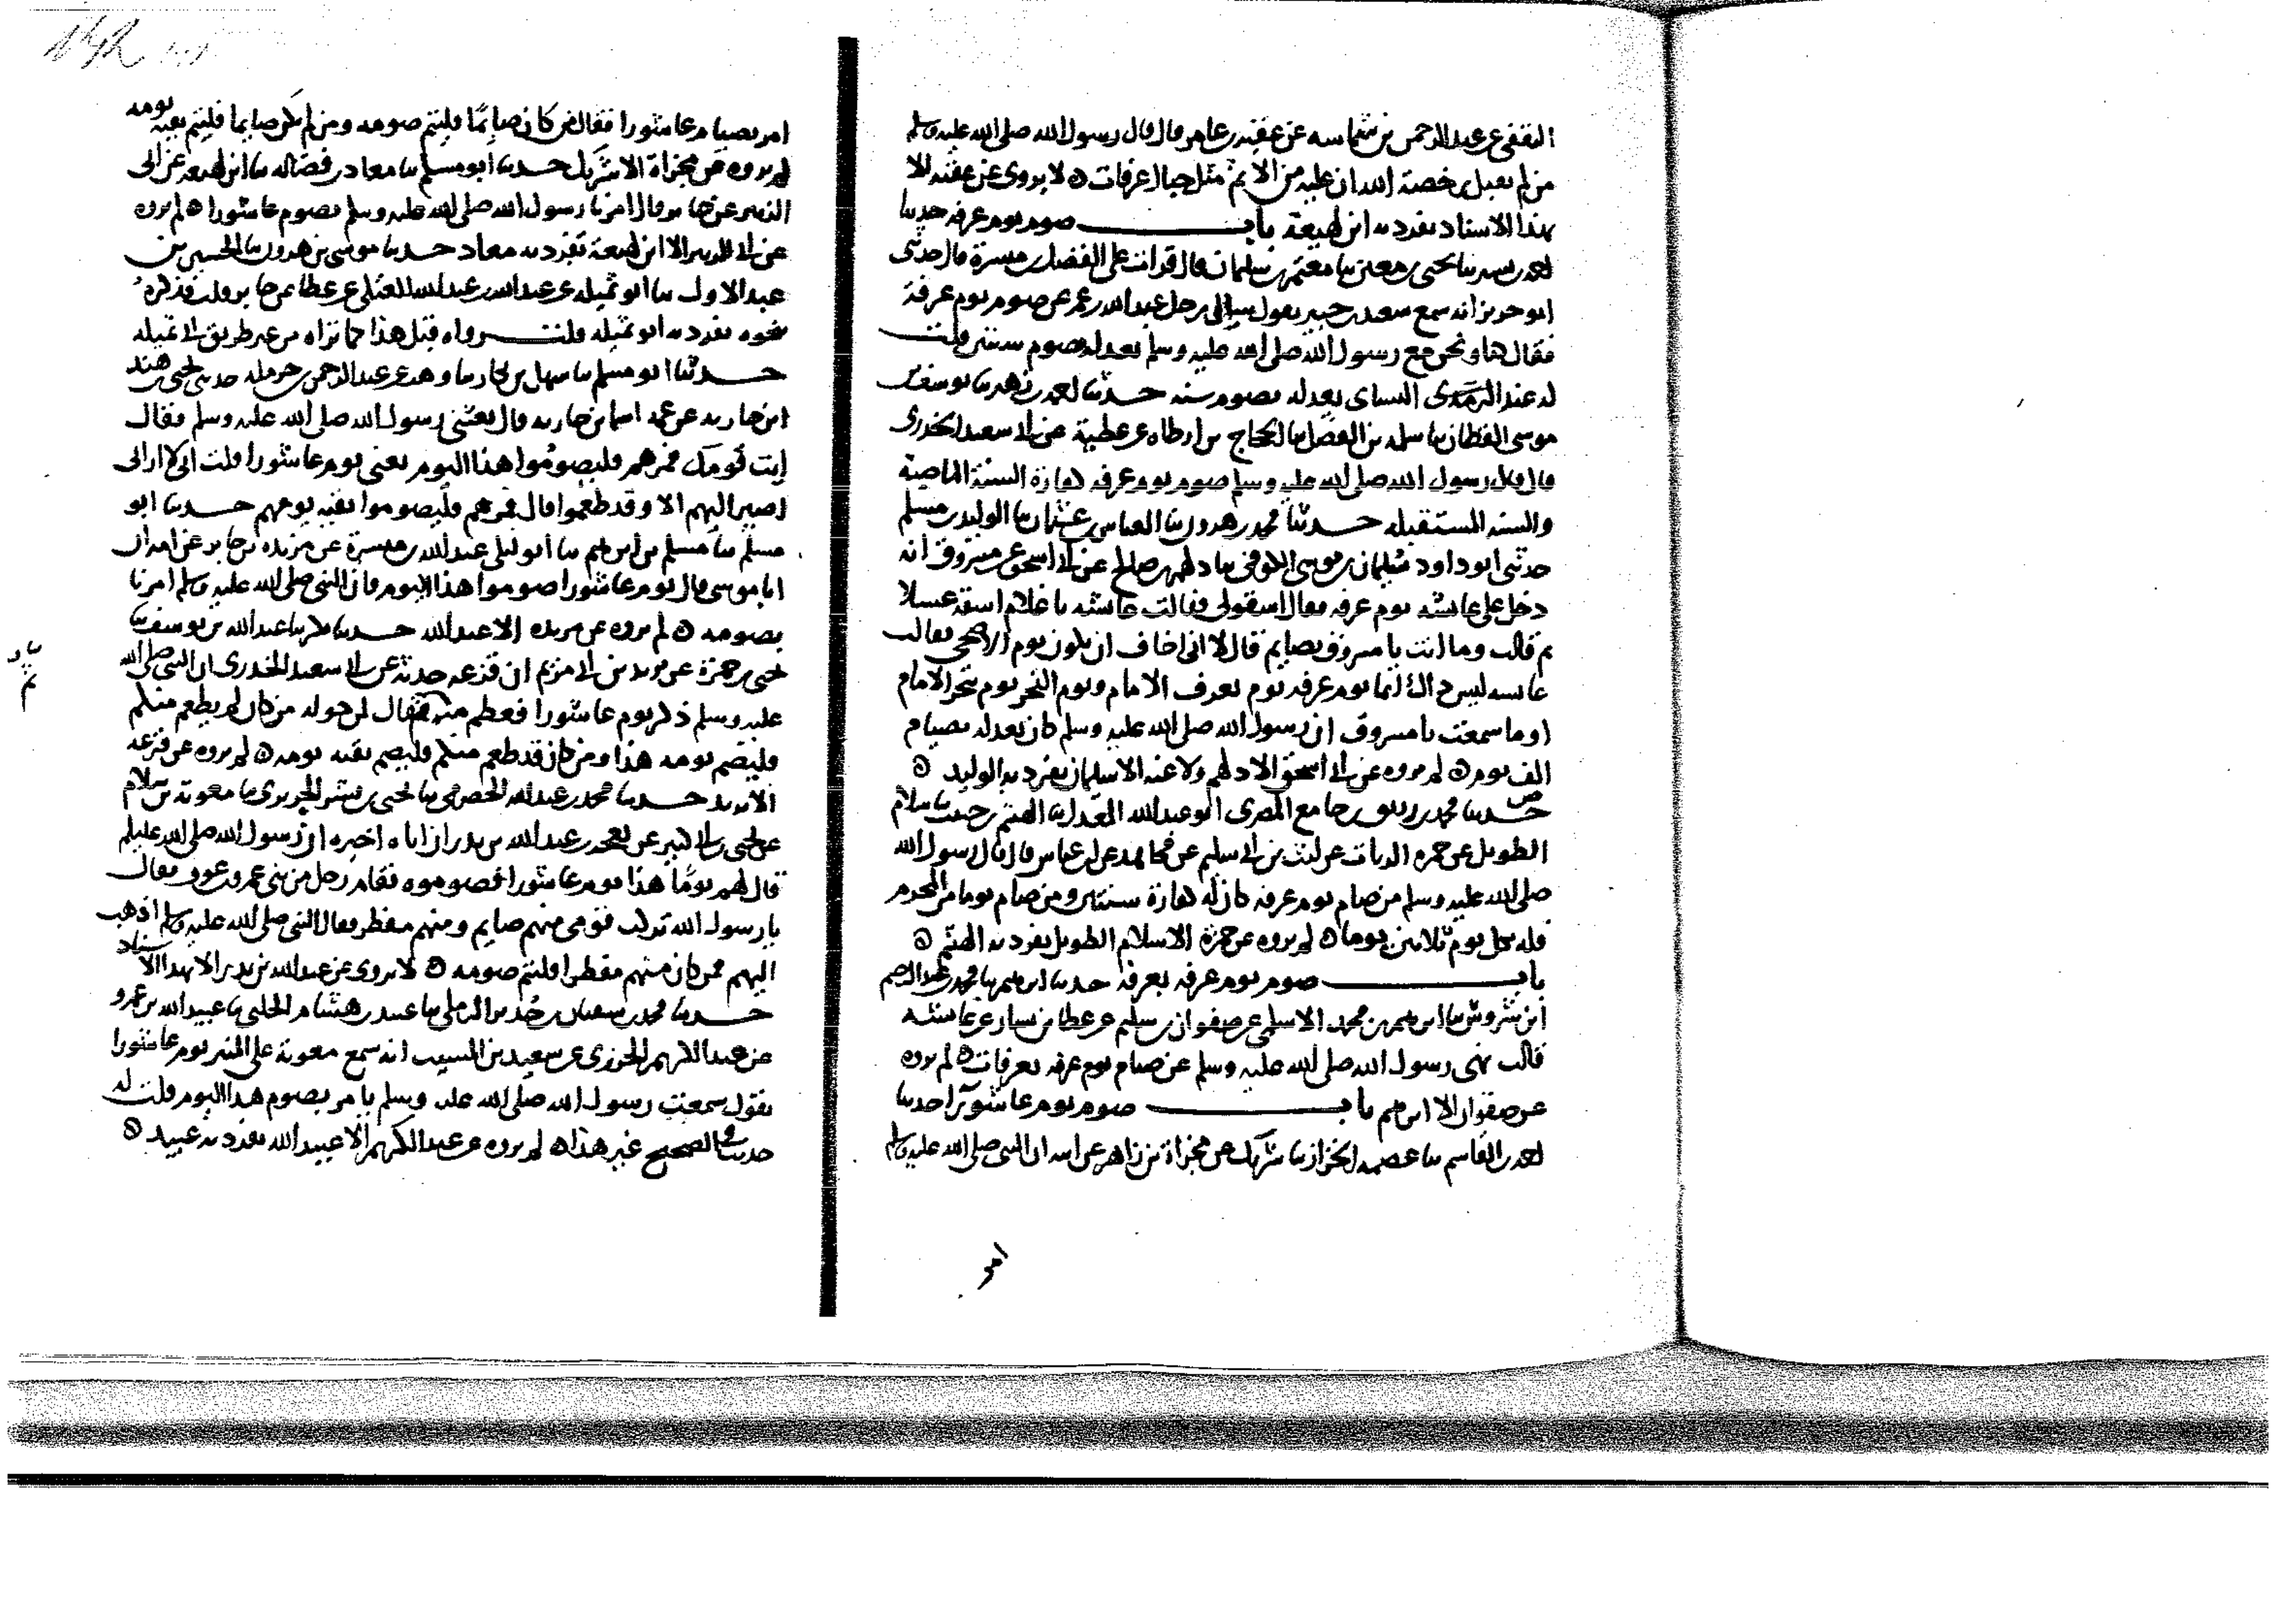 الثقفى عن عبد الرحمن بن شماسه عن عقبه بن عامر قال قال رسول الله صلى الله عليه وسلم
من لم يقبل رخصة الله كان عليه من الاثم مثل جبال عرفات ۞ لا يروى عن عقبه الا
بهذا الاسناد تفرد به ابن لهيعة باب صوم يوم عرفه حدثنا
احمد بن بشير ثنا يحيى بن معين ثنا معتمر بن سليمان قال قرات على الفضيل بن ميسرة قال حدثنى
ابو حريز انه سمع سعيد بن جبير يقول سال رجل عبد الله بن عمر عن صوم يوم عرفة
فقال كنا ونحن مع رسول الله صلى الله عليه وسلم نعدله بصوم سنتين قلت
له عند النساى يعدله بصوم سنه حدثنا احمد بن زهير ثنا يوسف بن
موسى القطان ثنا سلمه بن الفضل ثنا الحجاج بن ارطاه عن عطية عن ابى سعيد الخدرى
قال قال رسول الله صلى الله عليه وسلم صوم يوم عرفه كفارة السنة الماضية
والسنه المستقبله حدثنا محمد بن هرون ثنا العباس بن عثمان ثنا الوليد بن مسلم
حدثنى ابو داود سليمان بن موسى الكوفى ثنا دلهم بن صالح عن ابى اسحق عن مسروق انه
دخل على عائشه يوم عرفه فقال اسقونى فقالت عائشه يا غلام اسقه عسلا
ثم قالت وما انت يا مسروق بصايم قال لا انى اخاف ان يكون يوم الاضحى فقالت
عائشه ليس ذاك انما يوم عرفه يوم يعرف الامام ويوم النحر يوم ينحر الامام
اوما سمعت يا مسروق ان رسول الله صلى الله عليه وسلم كان يعدله بصيام
الف يوم ۞ لم يروه عن ابى اسحق الا دلهم ولا عنه الا سليمان تفرد به الوليد ۞
حدثنا محمد بن رزيق بن جامع المصرى ابو عبد الله المعدل ثنا الهيثم بن حبيب ثنا سلام
الطويل عن حمزه الزيات عن ليث بن ابى سليم عن مجاهد عن ابن عباس قال قال رسول الله
صلى الله عليه وسلم من صام يوم عرفه كان له كفارة سنتين ومن صام يوما من المحرم
فله بكل يوم ثلاثين يوما ۞ لم يروه عن حمزة الا سلام الطويل تفرد به الهيثم ۞
باب صوم يوم عرفه بعرفة حدثنا ابرهيم ثنا محمد بن عبد الرحيم
ابن شروس ثنا ابرهيم بن محمد الاسلمى عن صفوان بن سليم عن عطا بن يسار عن عائشه
قالت نهى رسول الله صلى الله عليه وسلم عن صيام يوم عرفه بعرفات ۞ لم يروه
عن صفوان الا ابرهيم باب صوم يوم عاشورا حدثنا
احمد بن القاسم ثنا عصمه الخزاز ثنا شريك عن مجزاة بن زاهر عن ابيه ان النبى صلى الله عليه وسلم
امر
امر بصيام عاشورا فقال من كان صائما فليتم صومه ومن لم يكن صايما فليتم بقية يومه
لم يروه عن مجزاة الا شريك حدثنا ابو مسلم ثنا معاذ بن فضاله ثنا ابن لهيعه عن ابى
الزبير عن جابر قال امرنا رسول الله صلى الله عليه وسلم بصوم عاشورا ۞ لم يروه
عن ابى الزبير الا ابن لهيعة تفرد به معاذ حدثنا موسى بن هرون ثنا الحسين بن
عبد الاول ثنا ابو تميله عن عبد الله بن عبد الله العتكى عن عطا عن جابر قلت فذكره
نحوه تفرد به ابو تميله قلت رواه قبل هذا كما تراه من غير طريق ابى تميله
حدثنا ابو مسلم ثنا سهل بن بكار ثنا وهيب عن عبد الرحمن بن حرمله حدثنى يحيى بن هند
ابن حارثه عن عمه اسما بن حارثه قال بعثنى رسول الله صلى الله عليه وسلم فقال
ايت قومك فمرهم فليصوموا هذا اليوم يعنى يوم عاشورا قلت انى لا ارانى
اصير اليهم الا وقد طعموا قال فمرهم فليصوموا بقية يومهم حدثنا ابو
مسلم ثنا مسلم بن ابرهيم ثنا ابو ليلى عبد الله بن ميسرة عن مزيده بن جابر عن امه ان
ابا موسى قال يوم عاشورا صوموا هذا اليوم فان النبى صلى الله عليه وسلم امرنا
بصومه ۞ لم يروه عن مزيده الا عبد الله حدثنا بكر ثنا عبد الله بن يوسف ثنا
يحيى بن حمزة عن يزيد بن ابى مريم ان قزعه حدثه عن ابى سعيد الخدرى ان النبى صلى الله
عليه وسلم ذكر يوم عاشورا فعظم منه فقال لمن حوله من كان لم يطعم منكم
فليصم يومه هذا ومن كان قد طعم منكم فليصم بقية يومه ۞ لم يروه عن قزعه
الا يزيد حدثنا محمد بن عبد الله الحضرمى ثنا يحيى بن بشر الحريرى ثنا معوية بن سلام
عن يحيى بن ابى كثير عن بعجه بن عبد الله بن بدر ان اباه اخبره ان رسول الله صلى الله عليه وسلم
قال لهم يوما هذا يوم عاشورا فصوموه فقام رجل من بنى عمرو بن عوف فقال
يا رسول الله تركت قومى منهم صايم ومنهم مفطر فقال النبى صلى الله عليه وسلم اذهب
اليهم فمن كان منهم مفطرا فليتم صومه ۞ لا يروى عن عبد الله بن بدر الا بهذا الاسناد
حدثنا محمد بن سفيان بن حدير الرملى ثنا عبيد بن هشام الحلبى ثنا عبيد الله بن عمرو
عن عبد الكريم الجزرى عن سعيد بن المسيب انه سمع معوية على المنبر يوم عاشورا
يقول سمعت رسول الله صلى الله عليه وسلم يامر بصوم هذا اليوم قلت له
حديث فى الصحيح غير هذا ۞ لم يروه عن عبد الكريم الا عبيد الله تفرد به عبيد ۞